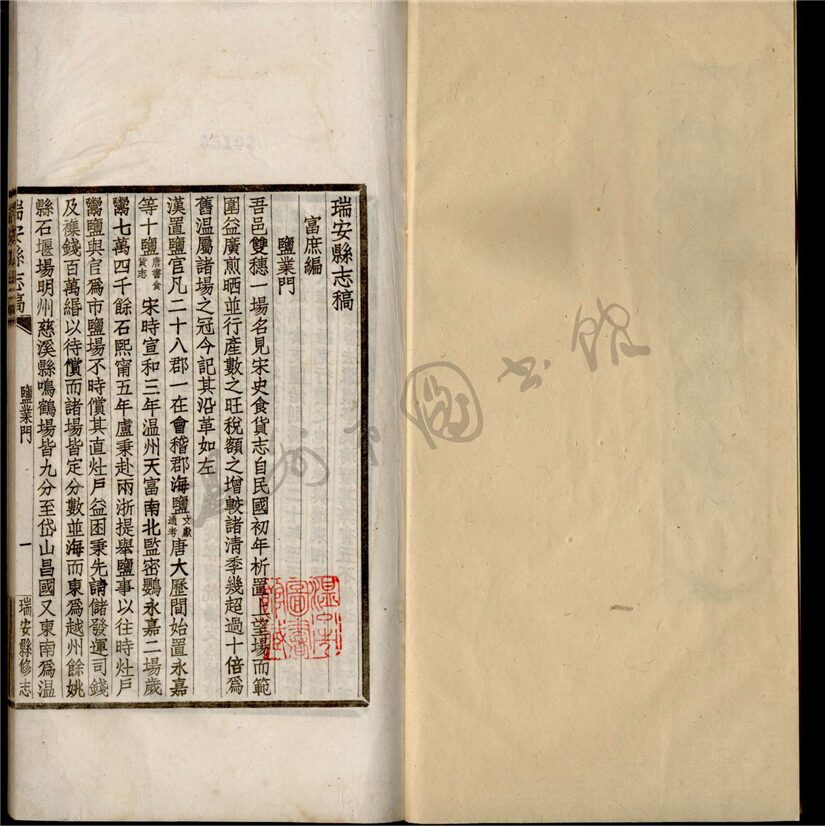 瑞安縣志稿
富庶編
鹽業門
吾邑雙穗一場名見宋史食貨志自民國初年析置上望場而範
圍益廣煎晒並行產數之旺稅額之增較諸清季幾超過十倍爲
舊温屬諸場之冠今記其沿革如左
漢置鹽官凡二十八郡一在會稽郡海鹽文獻通考唐大歷間始置永嘉
等十鹽唐書食貨志宋時宣和三年温州天富南北監密鸚永嘉二場歲
鬻七萬四千餘石熙甯五年盧秉赴兩浙提舉鹽事以往時灶戶
鬻鹽與官爲市鹽場不時償其直灶戶益困秉先請儲發運司錢
及襍錢百萬緡以待償而諸場皆定分數並海而東爲越州餘姚
縣石堰場明州慈溪縣鳴鶴場皆九分至岱山昌國又東南爲温
瑞安縣志稿
鹽業門
一
瑞安縣修志
温州市圖書館藏
温州市圖書館